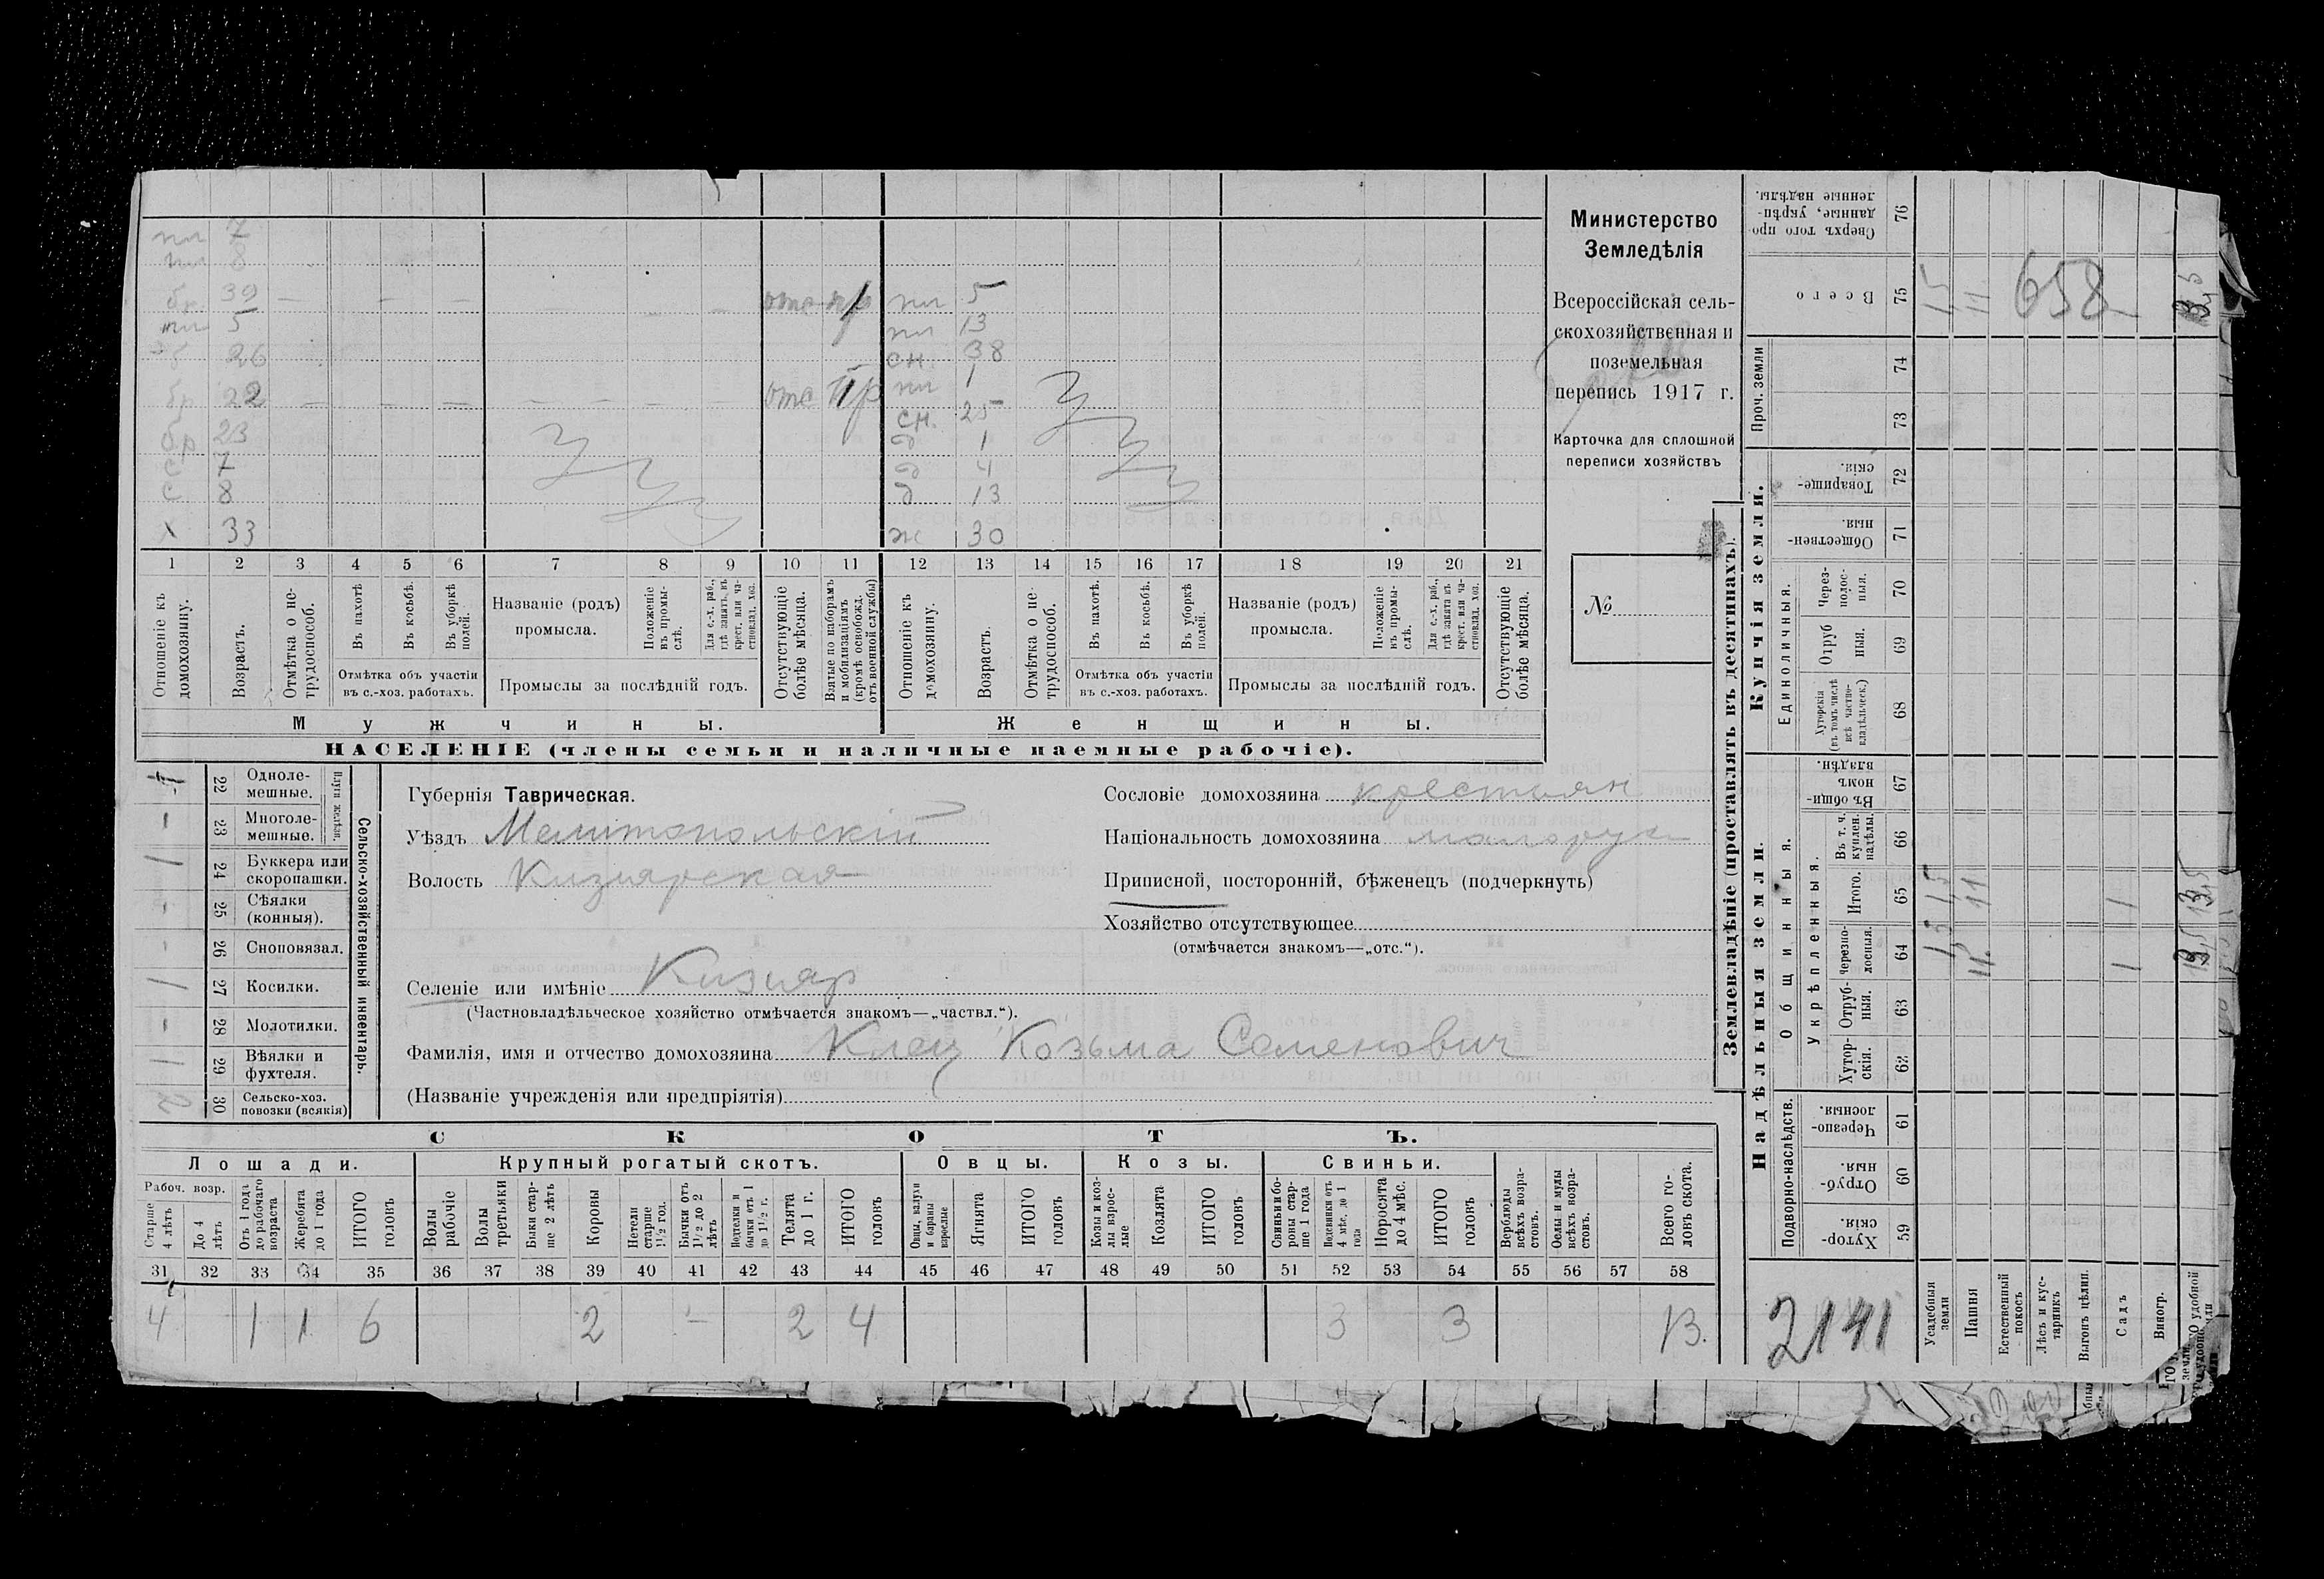 пл 7
пл 8
бр. 39 отс пр пл 5
пл 5 пл 13
26 сн. 38
бр 22 отс пр пл 1
сн. 25
бр 23 д 1
с 7 д 4
с 8 д 13
х 33 ж 30
1 2 3 4 5 6 7 8 9 10 11 12 13 14 15 16 17 18 19 20 21
Отношеніе къ домохозяину.
Возрастъ.
Отмѣтка о не-
трудоспособ.
Въ пахотѣ
Въ косьбѣ.
Въ уборкѣ полей.
Отмѣтка объ участіи
въ с.-хоз. работахъ.
Названіе (родъ)
промысла.
Положеніе
въ промы-
слѣ.
Для с.-х. раб.,
гдѣ занятъ, въ
крест. или ча-
стновлад. хоз.
Промыслы за послѣдній годъ.
Отсутствующіе
болѣе мѣсяца.
Взятые по наборамъ
и мобилизаціямъ
(кромѣ освобожд.
отъ военной службы)
Отношеніе къ
домохозяину.
Возрастъ.
Отмѣтка о не-
трудоспособ.
Въ пахотѣ.
Въ косьбѣ.
Въ уборкѣ
полей.
Отмѣтка объ участіи
въ с.-хоз. работахъ.
Названіе (родъ)
промысла.
Положеніе
въ промы-
слѣ.
Для с.-х. раб.,
гдѣ занята въ
крест. или ча-
стновлад. хоз.
Промыслы за послѣдній годъ.
Отсутствующіе
болѣе мѣсяца.
Мужчины. Женщины.
НАСЕЛЕНІЕ (члены семьи и наличные наемные рабочіе).
Министерство
Земледѣлія
Всероссійская сель-
скохозяйственная и
поземельная
перепись 1917 г.
Карточка для сплошной
переписи хозяйствъ
№
Сельско-хозяйственный инвентарь.
Плуги желѣзн.
22 Одноле-
мешные.
– 23 Многоле-
мешные.
1 24 Буккера или
скоропашки.
– 25 Сѣялки
(конныя).
– 26 Сноповязал.
1 27 Косилки.
– 28 Молотилки.
1 29 Вѣялки и
фухтеля.
2 30 Сельско-хоз.
повозки (всякія)
Губернія Таврическая.
Уѣздъ Мелитопольскій
Волость Кизиярская
Селеніе или имѣніе Кизияр
(Частновладѣльческое хозяйство отмѣчается знакомъ—„частвл.“).
Фамилія, имя и отчество домохозяина Клец Козьма Семенович
(Названіе учрежденія или предпріятія)
Сословіе домохозяина крестьян
Національность домохозяина малорус
Приписной, посторонній, бѣженецъ (подчеркнуть)
Хозяйство отсутствующее
(отмѣчается знакомъ—„отс.“).
СКОТЪ.
Лошади. Крупный рогатый скотъ. Овцы. Козы. Свиньи.
Рабоч. возр.
Старше
4 лѣтъ
До 4
лѣтъ
Отъ 1 года
до рабочаго
возраста
Жеребята
до 1 года
ИТОГО
головъ
Волы
рабочіе
Волы
третьяки
Быки стар-
ше 2 лѣтъ
Коровы
Нетели
старше
1½ год.
Бычки отъ
1½ до 2
лѣтъ
Нетелки и
бычки отъ 1
до 1½ г.
Телята
до 1 г.
ИТОГО
головъ
Овцы, валухи
и бараны
взрослые
Ягнята
ИТОГО
головъ
Козы и коз-
лы взрос-
лые
Козлята
ИТОГО
головъ
Свиньи и бо-
ровы стар-
ше 1 года
Подсвинки отъ
4 мѣс. до 1
года
Поросята
до 4 мѣс.
ИТОГО
головъ
Верблюды
всѣхъ возра-
стовъ.
Ослы и мулы
всѣхъ возра-
стовъ.
Всего го-
ловъ скота.
31 32 33 34 35 36 37 38 39 40 41 42 43 44 45 46 47 48 49 50 51 52 53 54 55 56 57 58
4 1 1 6 2 – 2 4 3 3 13.
Землевладѣніе (проставлять въ десятинахъ).
Надѣльныя земли. Купчія земли. Проч. земли
Подворно-наслѣдств.
Общинныя.
Укрѣпленныя.
Единоличныя.
Хутор-
скія. 59
Отруб-
ныя. 60
Черезпо-
лосныя. 61
Хутор-
скія. 62
Отруб-
ныя. 63
Черезпо-
лосныя. 64
Итого. 65
Въ т. ч.
куплен.
надѣлы. 66
Въ общи-
номъ
владѣн. 67
Хуторскія
(въ томъ числѣ
всѣ частно-
владѣльческ.) 68
Отруб
ныя. 69
Через-
полос-
ныя. 70
Обществен-
ныя. 71
Товарище-
скія. 72
73
74
Всего 75
Сверхъ того про-
данные, укрѣп-
ленные надѣлы. 76
Усадебныя
земли 1,5 1,5 1,5
Пашня 11 11 11
Естественный
покосъ
Лѣсъ и кус-
тарникъ
Выгонъ цѣлин.
Садъ 1 1
Виногр.
13,5 13,5 13,5
658
2141